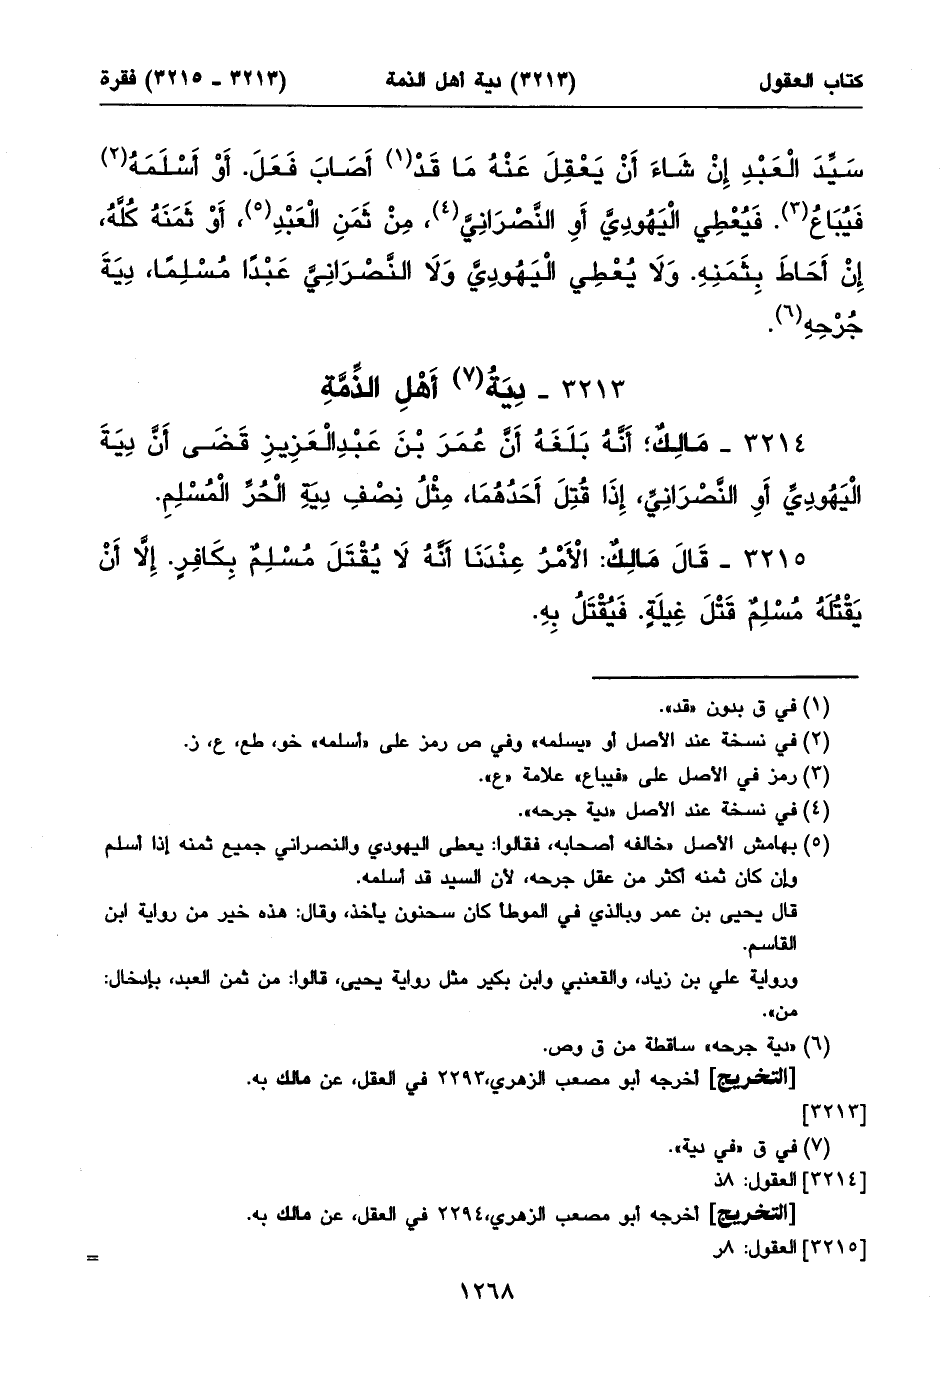 كتاب العقول (٣٢١٣) دية أهل الذمة (٣٢١٣ - ٣٢١٥) فقرة
سَيِّدَ الْعَبْدِ إِنْ شَاءَ أَنْ يَعْقِلَ عَنْهُ مَا قَدْ(١) أَصَابَ فَعَلَ. أَوْ أَسْلَمَهُ(٢)
فَيُبَاعُ(٣). فَيُعْطِي الْيَهُودِيَّ أَوِ النَّصْرَانِيَّ(٤)، مِنْ ثَمَنِ الْعَبْدِ(٥)، أَوْ ثَمَنَهُ كُلَّهُ،
إِنْ أَحَاطَ بِثَمَنِهِ. وَلَا يُعْطِي الْيَهُودِيَّ وَلَا النَّصْرَانِيَّ عَبْدًا مُسْلِمًا، دِيَةَ
جُرْحِهِ(٦).
٣٢١٣ - دِيَةُ(٧) أَهْلِ الذِّمَّةِ
٣٢١٤ - مَالِكٌ؛ أَنَّهُ بَلَغَهُ أَنَّ عُمَرَ بْنَ عَبْدِالْعَزِيزِ قَضَى أَنَّ دِيَةَ
الْيَهُودِيِّ أَوِ النَّصْرَانِيِّ، إِذَا قُتِلَ أَحَدُهُمَا، مِثْلُ نِصْفِ دِيَةِ الْحُرِّ الْمُسْلِمِ.
٣٢١٥ - قَالَ مَالِكٌ: الْأَمْرُ عِنْدَنَا أَنَّهُ لَا يُقْتَلَ مُسْلِمٌ بِكَافِرٍ. إِلَّا أَنْ
يَقْتُلَهُ مُسْلِمٌ قَتْلَ غِيلَةٍ. فَيُقْتَلُ بِهِ.
(١) في ق بدون «قد».
(٢) في نسخة عند الأصل أو «يسلمه» وفي ص رمز على «أسلمه» خو، طع، ع، ز.
(٣) رمز في الأصل على «فيباع» علامة «ع».
(٤) في نسخة عند الأصل «دية جرحه».
(٥) بهامش الأصل «خالفه أصحابه، فقالوا: يعطى اليهودي والنصراني جميع ثمنه إذا أسلم
وإن كان ثمنه أكثر من عقل جرحه، لأن السيد قد أسلمه.
قال يحيى بن عمر وبالذي في الموطأ كان سحنون يأخذ، وقال: هذه خير من رواية ابن
القاسم.
ورواية علي بن زياد، والقعنبي وابن بكير مثل رواية يحيى، قالوا: من ثمن العبد، بإدخال:
من».
(٦) «دية جرحه» ساقطة من ق وص.
[التخريج] أخرجه أبو مصعب الزهري،٢٢٩٣ في العقل، عن مالك به.
[٣٢١٣]
(٧) في ق «في دية».
[٣٢١٤] العقول: ٨ذ
[التخريج] أخرجه أبو مصعب الزهري،٢٢٩٤ في العقل، عن مالك به.
[٣٢١٥] العقول: ٨ر
=
١٢٦٨